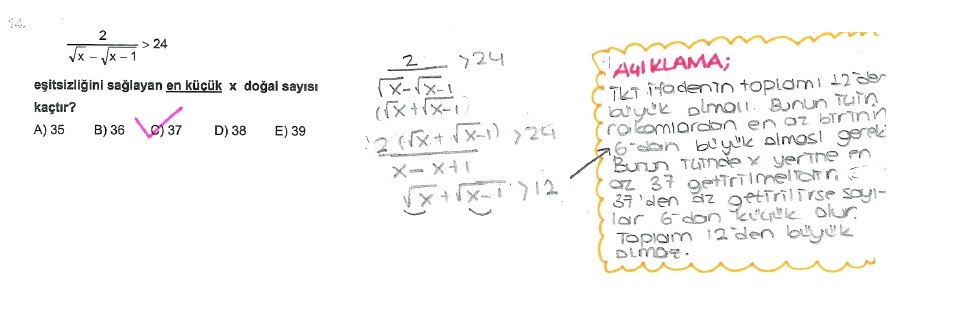 14.
2 / (√x − √x − 1) > 24
eşitsizliğini sağlayan en küçük x doğal sayısı
kaçtır?
A) 35 B) 36 C) 37 D) 38 E) 39
2 / (√x − √x-1) > 24
(√x + √x-1)
2 (√x + √x-1) / (x - x + 1) > 24
√x + √x-1 > 12
AÇIKLAMA;
İki ifadenin toplamı 12'den
büyük olmalı. Bunun için
rakamlardan en az birinin
6-dan büyük olması gerek
Bunun içinde x yerine en
az 37 getirilmelidir.
37'den az getirilirse sayı-
lar 6-dan küçük olur.
Toplam 12'den büyük
olmaz.